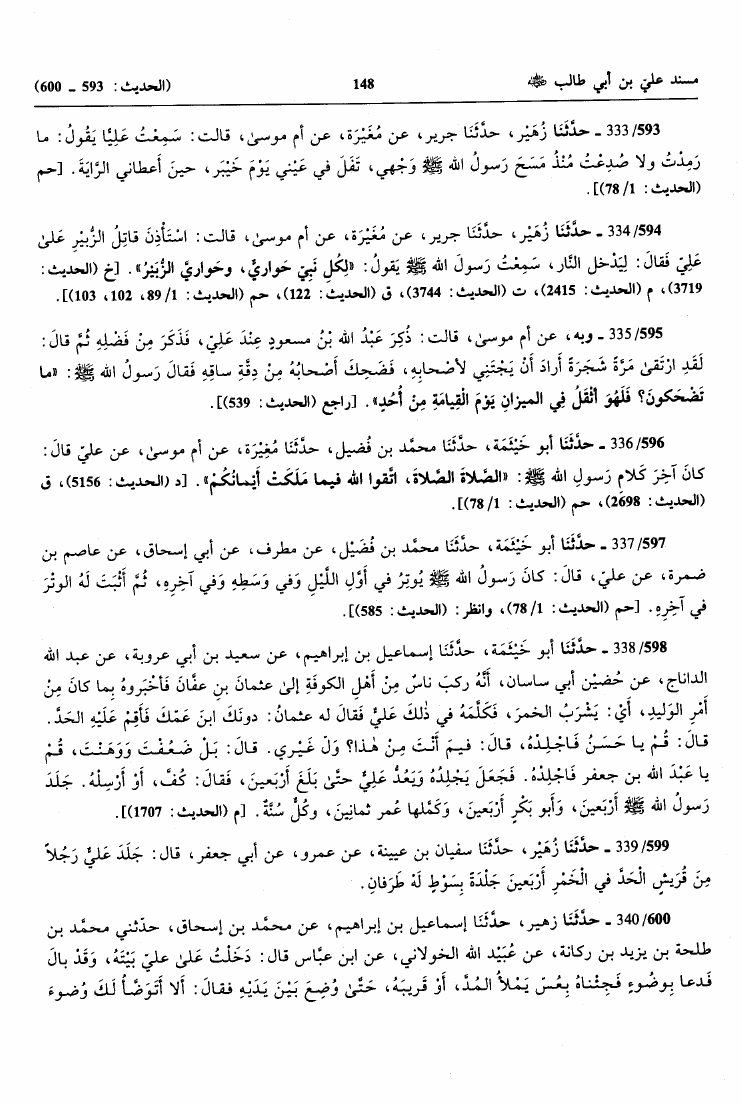 مسند عليّ بن أبي طالب ﷺ 148 (الحديث: 593 ـ 600)
333/593 ـ حدَّثنَا زُهَيْر، حدَّثنَا جرير، عن مُغَيْرَة، عن أم موسىٰ، قالت: سَمِعْتُ عَلِيًّا يَقُولُ: ما
رَمِدْتُ ولا صُدِعْتُ مُنْذُ مَسَحَ رَسولُ الله ﷺ وَجْهي، تَفَلَ في عَيْني يَوْمَ خَيْبَر، حينَ أَعطاني الرَّايَةَ. [حم
(الحديث: 1/ 78)].
334/594 ـ حدَّثنَا زُهَيْر، حدَّثنَا جرير، عن مُغَيْرَة، عن أم موسىٰ، قالت: اسْتَأْذِنَ قاتِلُ الزُّبَيْرِ عَلىٰ
عَلِيّ فَقالَ: لِيَدْخلِ النَّار، سَمِعْتُ رَسولَ الله ﷺ يَقولُ: «لِكُلِ نَبِيّ حَواريٌّ، وحَواريَّ الزُّبَيْرُ». [خ (الحديث:
3719)، م (الحديث: 2415)، ت (الحديث: 3744)، ق (الحديث: 122)، حم (الحديث: 1/ 89، 102، 103)].
335/595 ـ وبه، عن أم موسىٰ، قالت: ذُكِرَ عَبْدُ الله بْنُ مسعودٍ عِنْدَ عَلِيّ، فَذَكَرَ مِنْ فَضْلِهِ ثُمَّ قالَ:
لَقَدِ ارْتَقىٰ مَرَّةً شَجَرَةً أَرادَ أَنْ يَجْتَنِي لأَصْحابِهِ، فَضَحِكَ أَصْحابُهُ مِنْ دِقَّةِ ساقِهِ فَقالَ رَسولُ الله ﷺ: «ما
تَضْحَكونَ؟ فَلَهُوَ أَثْقَلُ فِي الميزانِ يَوْمَ القِيامَةِ مِنْ أُحُدٍ». [راجع (الحديث: 539)].
336/596 ـ حدَّثنَا أبو خَيْثَمَة، حدَّثنَا محمَّد بن فُضيل، حدَّثنَا مُغِيْرَة، عن أم موسىٰ، عن عليّ قالَ:
كانَ آخِرَ كَلامِ رَسولِ الله ﷺ: «الصَّلاةَ الصَّلاةَ، اتَّقوا الله فيما مَلَكَتْ أَيْمانُكُمْ». [د (الحديث: 5156)، ق
(الحديث: 2698)، حم (الحديث: 1/ 78)].
337/597 ـ حدَّثنَا أبو خَيْثَمة، حدَّثنَا محمَّد بن فُضَيْل، عن مطرف، عن أبي إسحاق، عن عاصم بن
ضمرة، عن عليّ، قالَ: كانَ رَسولُ الله ﷺ يُوتِرُ في أَوَّلِ اللَّيْلِ وَفي وَسَطِهِ وَفي آخِرِهِ، ثُمَّ أَثْبَتَ لَهُ الوتْرَ
في آخِرِهِ. [حم (الحديث: 1/ 78)، وانظر: (الحديث: 585)].
338/598 ـ حدَّثنَا أبو خَيْثَمة، حدَّثنَا إسماعيل بن إبراهيم، عن سعيد بن أبي عروبة، عن عبد الله
الداناج، عن حُضيْن أبي ساسان، أَنَّهُ ركبَ ناسٌ مِنْ أَهْلِ الكوفَةِ إِلىٰ عثمانَ بنِ عفَّانَ فَأَخْبَروهُ بِما كانَ مِنْ
أَمْرِ الوَليدِ، أَيْ: يَشْرَبُ الخمرَ، فَكَلَّمَهُ في ذٰلكَ عَليٌّ فَقالَ له عثمانُ: دونَكَ ابنَ عَمّكَ فَأَقِمْ عَلَيْهِ الحَدَّ.
قالَ: قُمْ يا حَسَنُ فَاجْلِدْهُ، قالَ: فيمَ أَنْتَ مِنْ هٰذا؟ وَلّ غَيْري. قالَ: بَلْ ضَعُفْتَ وَوَهَنْتَ، قُمْ
يا عَبْدَ الله بن جعفر فَاجْلِدْهُ. فَجَعَلَ يَجْلِدُهُ وَيَعُدُّ عَلِيٌّ حتَّىٰ بَلَغَ أَرْبَعينَ، فَقالَ: كُفَّ، أَوْ أَرْسِلْهُ. جَلَدَ
رَسولُ الله ﷺ أَرْبَعينَ، وَأَبو بَكْرٍ أَرْبَعينَ، وَكَمَّلها عُمر ثمانينَ، وكُلٌّ سُنَّةٌ. [م (الحديث: 1707)].
339/599 ـ حدَّثنَا زُهَيْر، حدَّثنَا سفيان بن عيينة، عن عمرو، عن أبي جعفر، قال: جَلَدَ عَليٌّ رَجُلاً
مِنَ قُرَيشٍ الحَدَّ في الخَمْرِ أَرْبَعينَ جَلْدَةً بِسَوْطٍ لَهُ طَرَفانِ.
340/600 ـ حدَّثنَا زهير، حدَّثنَا إسماعيل بن إبراهيم، عن محمَّد بن إسحاق، حدّثني محمَّد بن
طلحة بن يزيد بن ركانة، عن عُبَيْد الله الخولاني، عن ابن عبَّاس قال: دَخَلْتُ عَلىٰ عليّ بَيْتَهُ، وَقَدْ بالَ
فَدعا بِوضُوءٍ فَجِئْناهُ بِعُسّ يَمْلأُ المُدَّ، أَوْ قَريبَهُ، حَتَّىٰ وُضِعَ بَيْنَ يَدَيْهِ فقالَ: أَلا أَتَوَضَّأُ لَكَ وُضوءَ